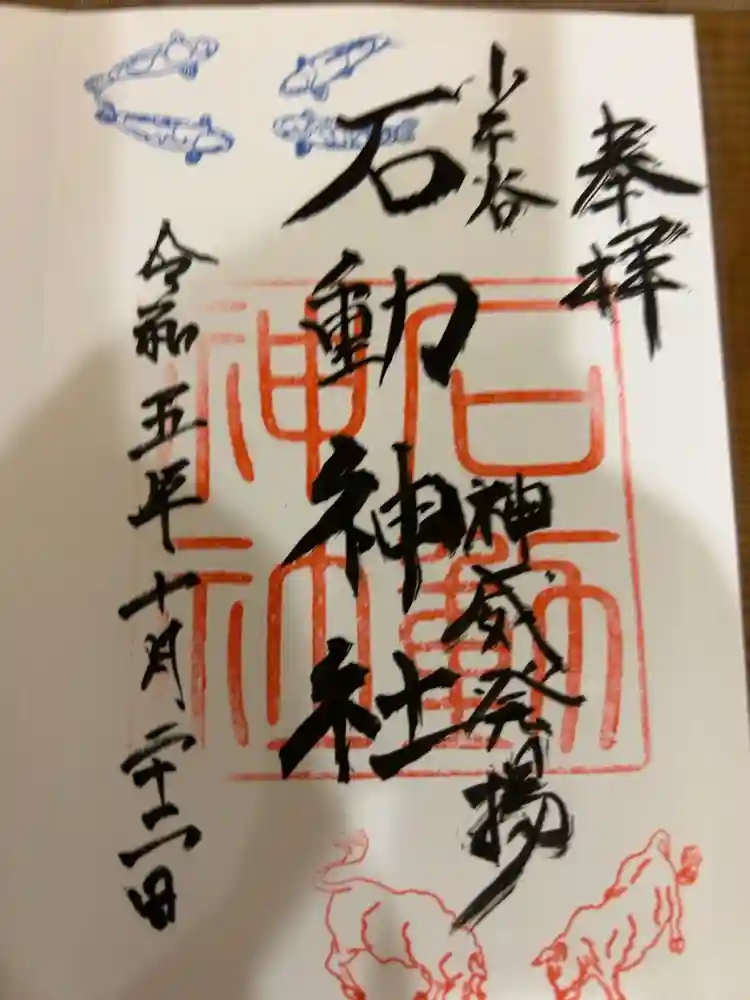 奉拝
小千谷
石動神社
神威発揚
令和五年十月二十二日
石動
神社